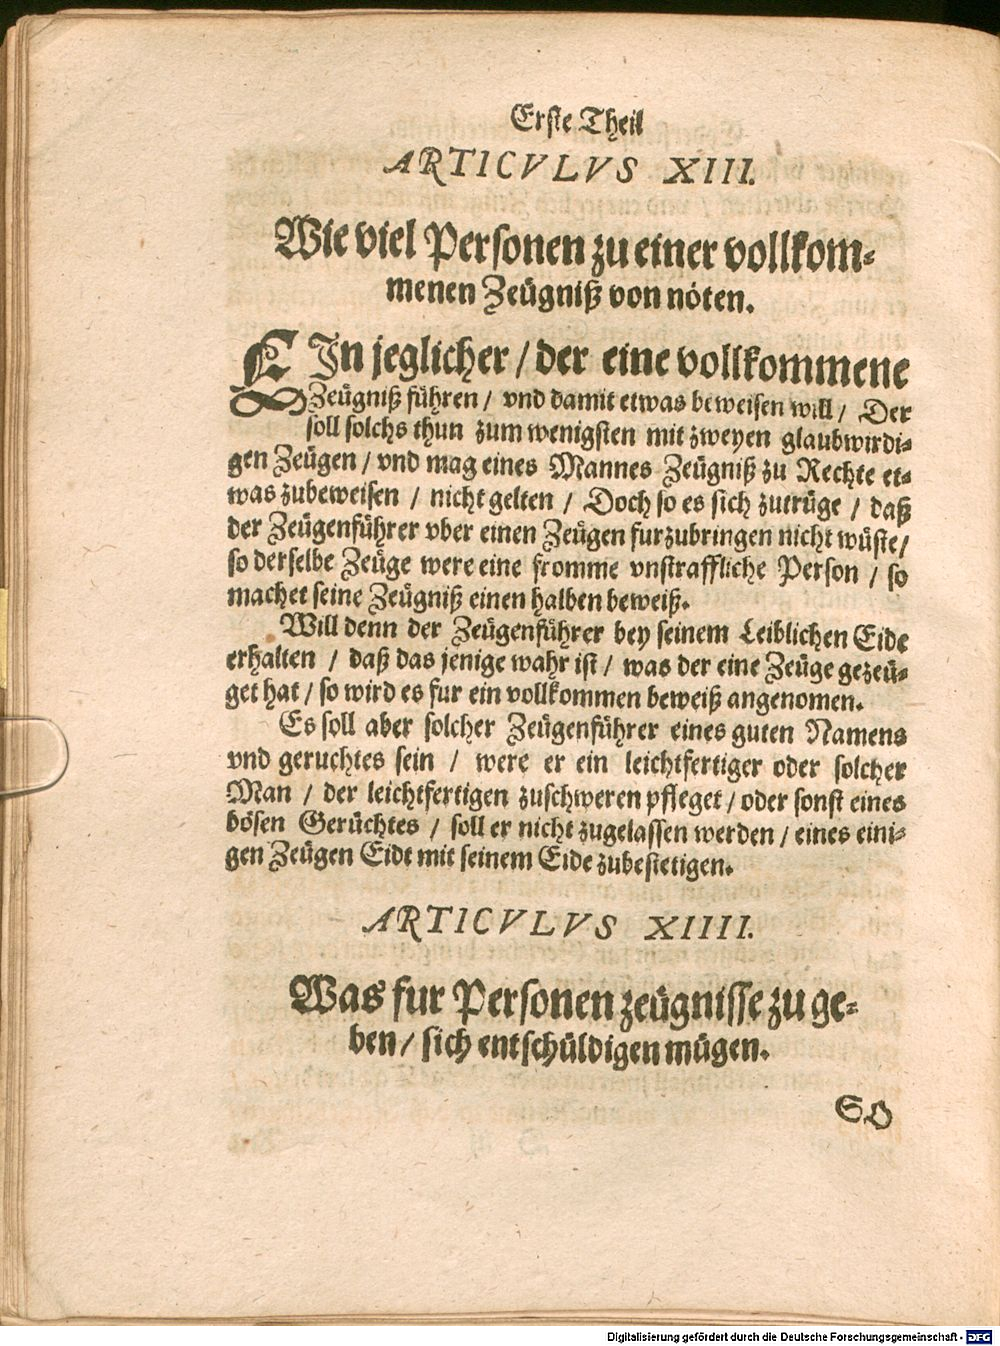 Erste Theil
ARTICVLVS XIII.
Wie viel Personen zu einer vollkom-
menen Zeügniß von nöten.
EIn jeglicher / der eine vollkommene
Zeügniß führen / vnd damit etwas beweisen will / Der
soll solchs thun zum wenigsten mit zweyen glaubwirdi-
gen Zeügen / vnd mag eines Mannes Zeügniß zu Rechte et-
was zubeweisen / nicht gelten / Doch so es sich zutrüge / daß
der Zeügenführer vber einen Zeügen furzubringen nicht wüste /
so derselbe Zeüge were eine fromme vnstraffliche Person / so
machet seine Zeügniß einen halben beweiß.
Will denn der Zeügenführer bey seinem Leiblichen Eide
erhalten / daß das jenige wahr ist / was der eine Zeüge gezeü-
get hat / so wird es fur ein vollkommen beweiß angenomen.
Es soll aber solcher Zeügenführer eines guten Namens
vnd geruchtes sein / were er ein leichtfertiger oder solcher
Man / der leichtfertigen zuschweren pfleget / oder sonst eines
bösen Gerüchtes / soll er nicht zugelassen werden / eines eini-
gen Zeügen Eidt mit seinem Eide zubestetigen.
ARTICVLVS XIIII.
Was fur Personen zeügnisse zu ge-
ben / sich entschüldigen mügen.
SO
Digitalisierung gefördert durch die Deutsche Forschungsgemeinschaft - DFG